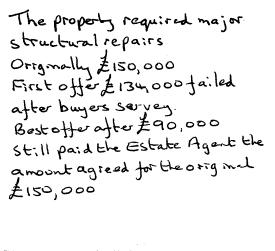 The property required major
structural repairs
Originally £150,000
First offer £134,000 failed
after buyers survey.
Best offer after £90,000
Still paid the Estate Agent the
amount agreed for the original
£150,000